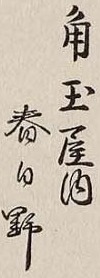 角玉屋内
春日野